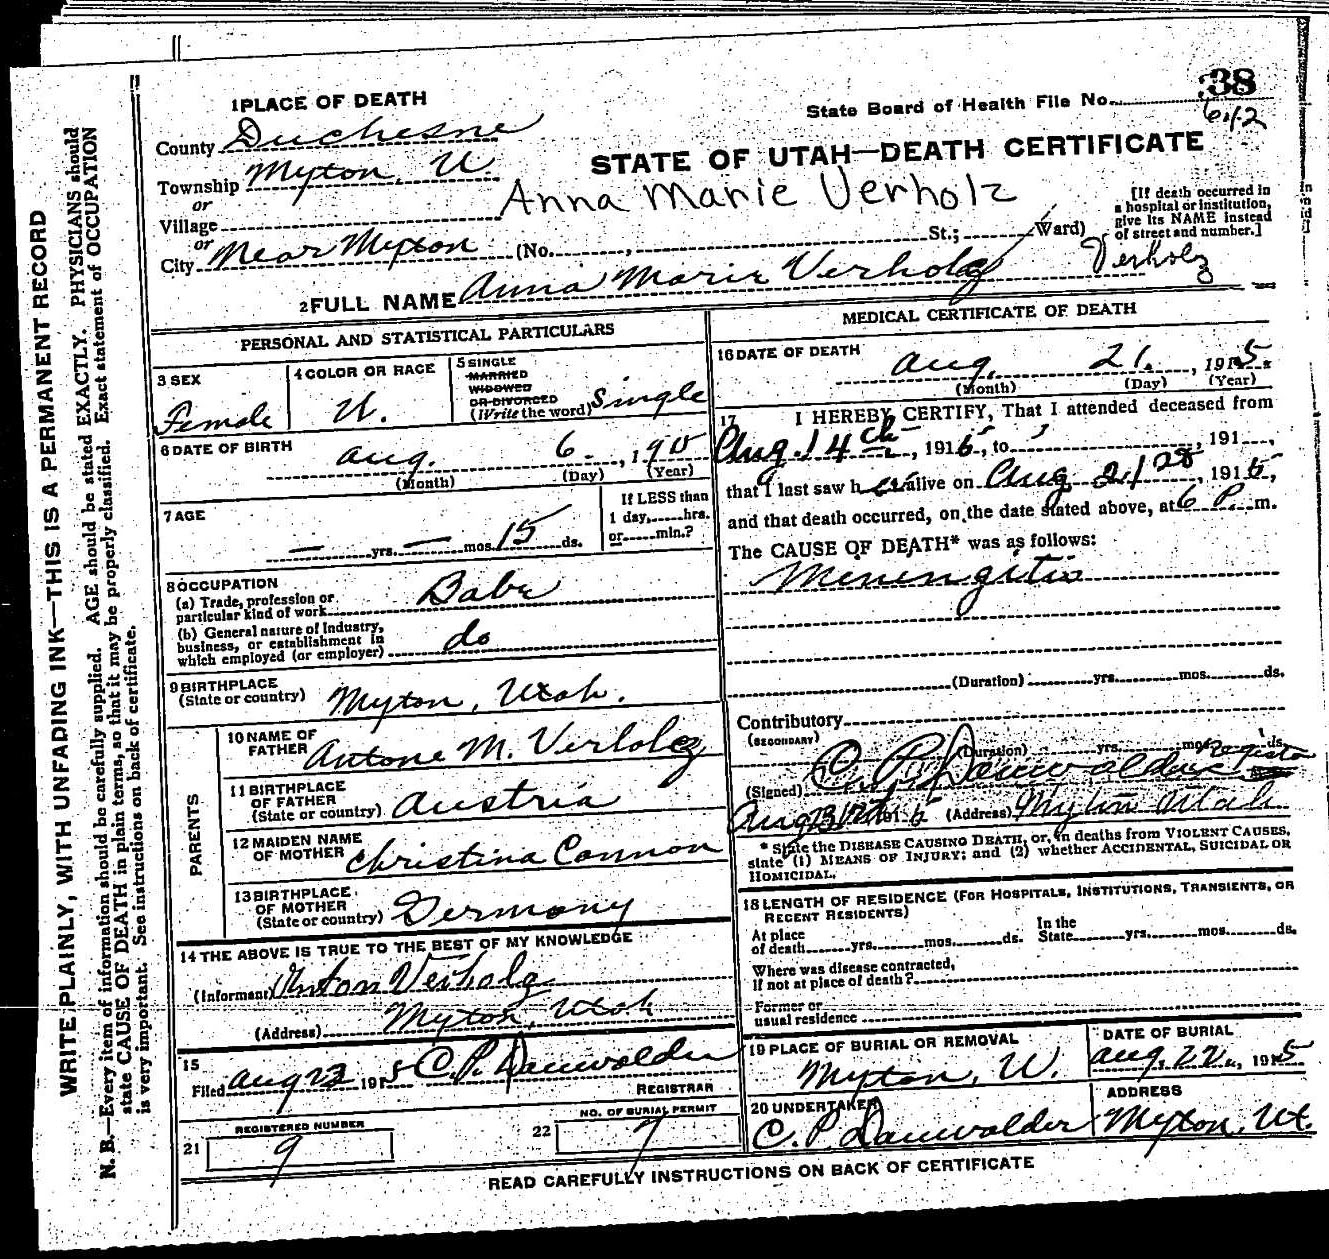 1 PLACE OF DEATH
State Board of Health File No. 38
642
County Duchesne
STATE OF UTAH—DEATH CERTIFICATE
Township Myton, U.
or
Anna Marie Verholz
Village
or
City Near Myton (No. , St.; Ward)
[If death occurred in
a hospital or institution,
give its NAME instead
of street and number.]
Verholz
2 FULL NAME Anna Marie Verholz
PERSONAL AND STATISTICAL PARTICULARS
3 SEX
Female
4 COLOR OR RACE
W.
5 SINGLE
MARRIED
WIDOWED
OR DIVORCED
(Write the word) Single
6 DATE OF BIRTH
Aug. 6. , 19
(Month) (Day) (Year)
7 AGE
— yrs. — mos. 15 ds.
If LESS than
1 day, hrs.
or min.?
8 OCCUPATION
(a) Trade, profession or
particular kind of work Babe
(b) General nature of Industry,
business, or establishment in
which employed (or employer) do
9 BIRTHPLACE
(State or country) Myton, Utah.
PARENTS
10 NAME OF
FATHER Antone M. Verholz
11 BIRTHPLACE
OF FATHER
(State or country) Austria
12 MAIDEN NAME
OF MOTHER Christina Connon
13 BIRTHPLACE
OF MOTHER
(State or country) Germony
14 THE ABOVE IS TRUE TO THE BEST OF MY KNOWLEDGE
(Informant) Anton Verholz
(Address) Myton, Utah
15
Filed Aug 23 1915 C. P. Dauwalder
REGISTRAR
21 REGISTERED NUMBER
9
22 NO. OF BURIAL PERMIT
7
MEDICAL CERTIFICATE OF DEATH
16 DATE OF DEATH
Aug. 21. , 1915.
(Month) (Day) (Year)
17 I HEREBY CERTIFY, That I attended deceased from
Aug. 14th , 1915, to , 191 ,
that I last saw h er alive on Aug 21 , 1915,
and that death occurred, on the date stated above, at 6 P. m.
The CAUSE OF DEATH* was as follows:
Meningitis
(Duration) yrs. mos. ds.
Contributory
(SECONDARY)
(Duration) yrs. mos. ds.
(Signed) C. P. Dauwalder Registor
Aug 1915 (Address) Myton Utah
* State the DISEASE CAUSING DEATH, or, in deaths from VIOLENT CAUSES,
state (1) MEANS OF INJURY; and (2) whether ACCIDENTAL, SUICIDAL OR
HOMICIDAL.
18 LENGTH OF RESIDENCE (FOR HOSPITALS, INSTITUTIONS, TRANSIENTS, OR
RECENT RESIDENTS)
At place
of death yrs. mos. ds.
In the
State yrs. mos. ds.
Where was disease contracted,
if not at place of death?
Former or
usual residence
19 PLACE OF BURIAL OR REMOVAL
Myton, U.
DATE OF BURIAL
Aug. 22, 1915
20 UNDERTAKER
C. P. Dauwalder
ADDRESS
Myton, Ut.
READ CAREFULLY INSTRUCTIONS ON BACK OF CERTIFICATE
WRITE PLAINLY, WITH UNFADING INK—THIS IS A PERMANENT RECORD
N. B.—Every item of information should be carefully supplied. AGE should be stated EXACTLY. PHYSICIANS should
state CAUSE OF DEATH in plain terms, so that it may be properly classified. Exact statement of OCCUPATION
is very important. See instructions on back of certificate.